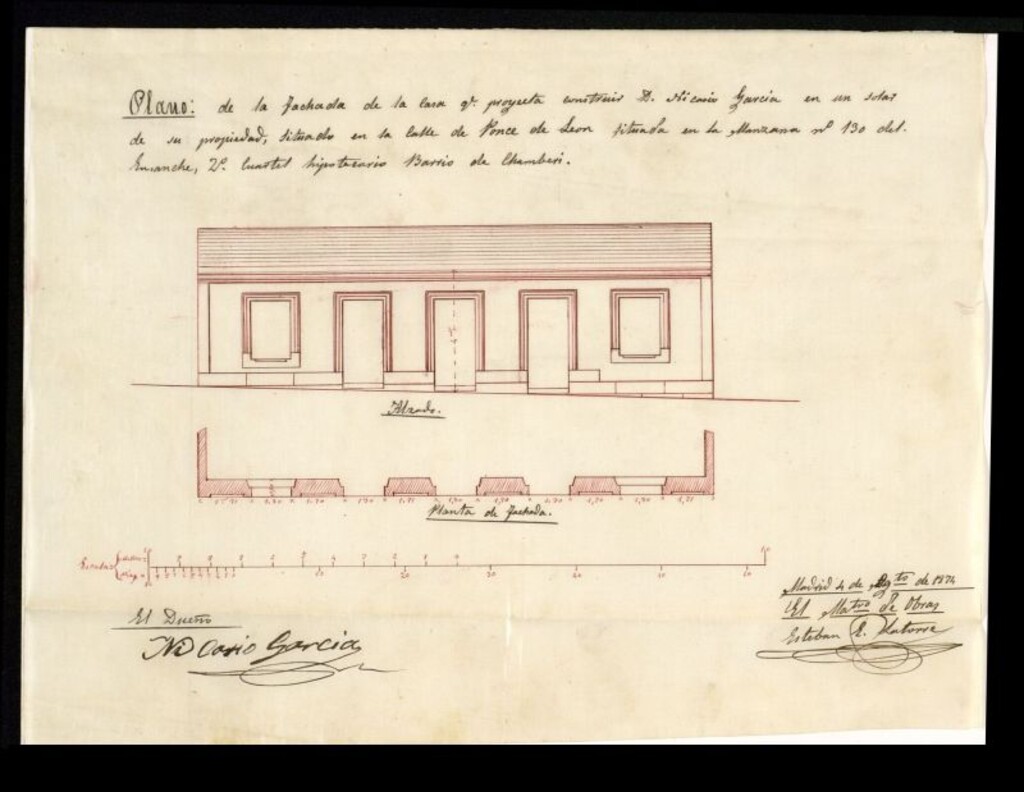 Plano: de la fachada de la casa qe. proyecta construir D. Nicasio Garcia en un solar
de su propiedad, situado en la Calle de Ponce de Leon situada en la Manzana nº 130 del
Ensanche, 2º. Cuartel hipotecario Barrio de Chamberi.
Alzado.
Planta de fachada.
10 20 30 40 50 60
El Dueño
Nicasio Garcia
Madrid 4 de Agto de 1874
El Mastro de Obras
Esteban Latorre